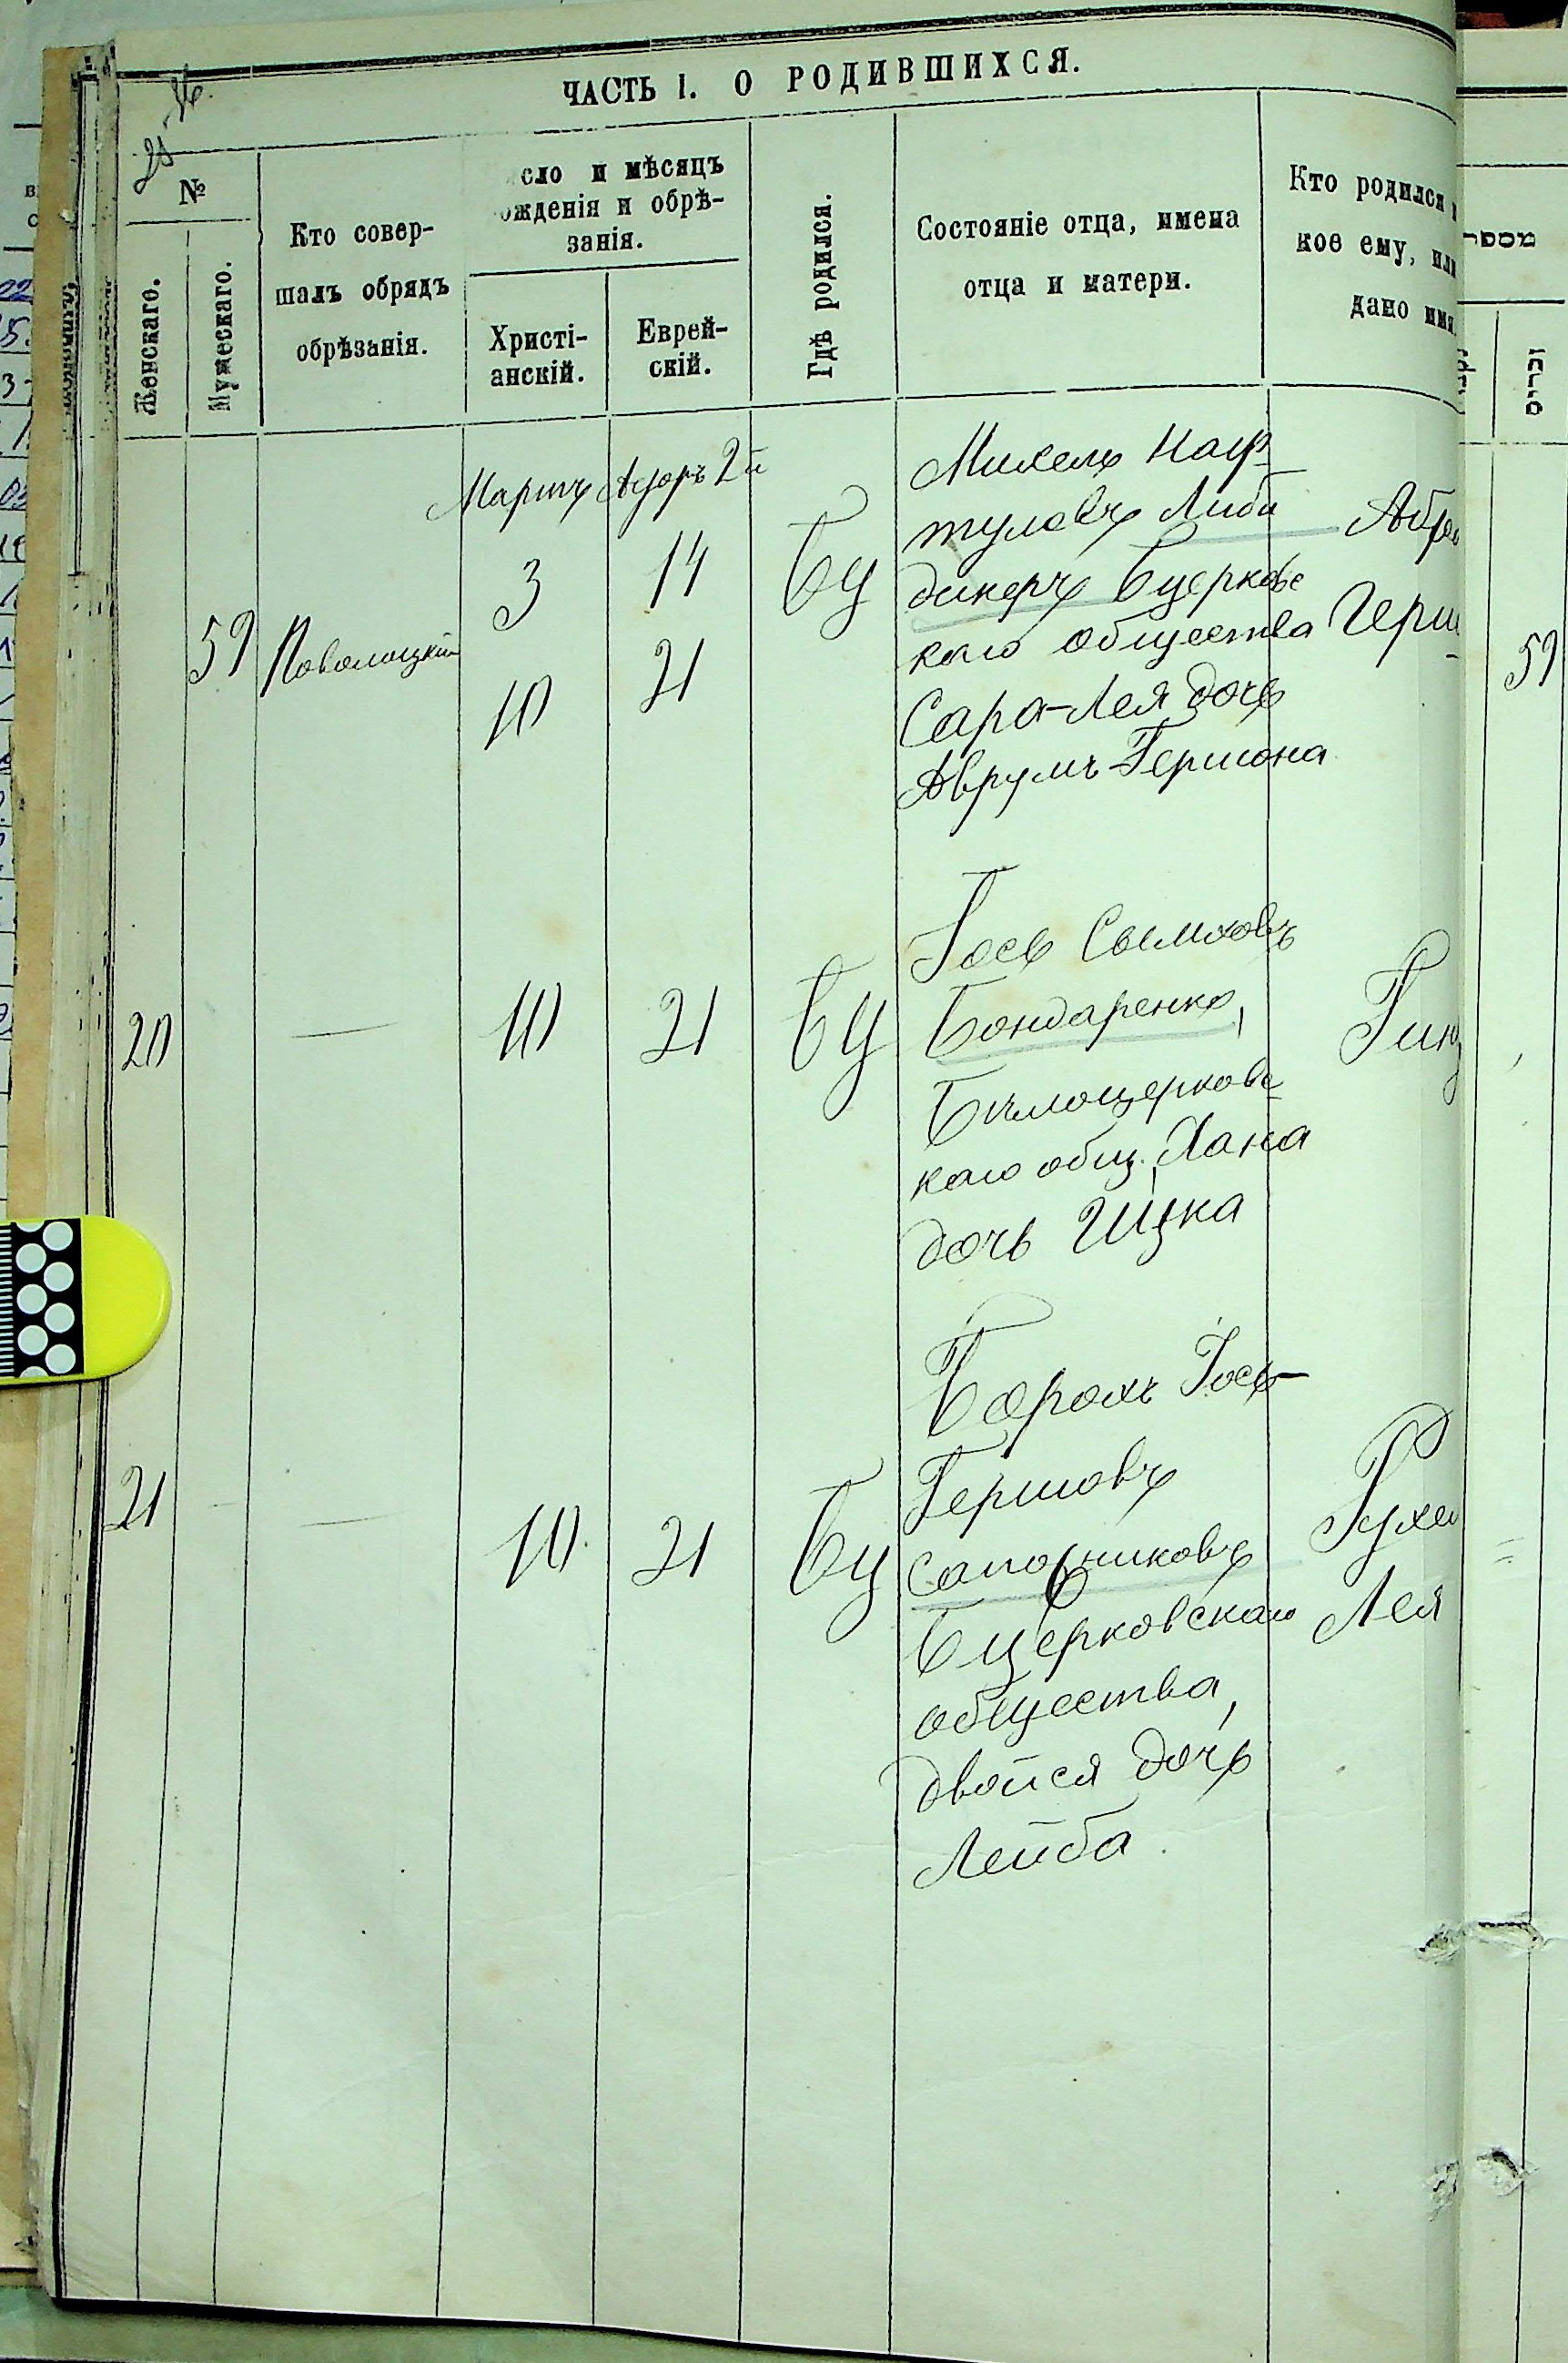 ЧАСТЬ I. О РОДИВШИХСЯ.
№
Женскаго.
Мужескаго.
Кто совер-
шалъ обрядъ
обрѣзанія.
сло и мѣсяцъ
ожденія и обрѣ-
занія.
Христі-
анскій.
Еврей-
скій.
Гдѣ родился.
Состояніе отца, имена
отца и матери.
Кто родился и
кое ему, или
дано имя.
מספר
זכרים
Мартъ Адоръ 2й
59 Поволоцкій
3 14
10 21
БЦ
Михель Наф-
туловъ Либи
дикеръ Бцерковс
каго общества
Сара-Лея дочь
Аврумъ-Гершона
Абра
Герш
59
20 — 10 21 БЦ
Іось Сымховъ
Бондаренко,
Бѣлоцерковс
каго общ. Хана
дочь Ицка
21 — 10 21 БЦ
Борохъ Іось-
Гершовъ
Сапожниковъ
Бцерковскаго
общества,
Двойся дочь
Лейба
Рухл
Лея